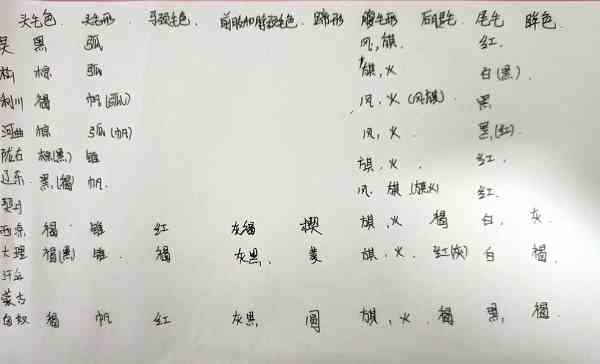 头毛色、头毛形、马颈毛色、前肢和 毛色、蹄形 胸毛形 后腿毛 尾毛 眸色、
吴 黑 弧 风,旗. 红.
棕 弧 旗,火 白(黑).
利川 褐 帆(弧) 风,火(风旗). 黑
河曲 棕 弧(帆) 风,火. 黑(红).
陇右 棕(黑) 锥 旗,火. 红.
辽东. 黑(褐) 帆. 风 旗(旗火) 红.
契丹
西凉 褐 锥 红 灰褐 楔 旗,火 褐 白, 灰.
大理 褐(黑) 锥. 褐 灰黑. 旗,火. 红(灰) 白 褐.
蒙古
匈奴 褐 帆 红 灰黑 圆 旗,火. 褐 黑, 褐.